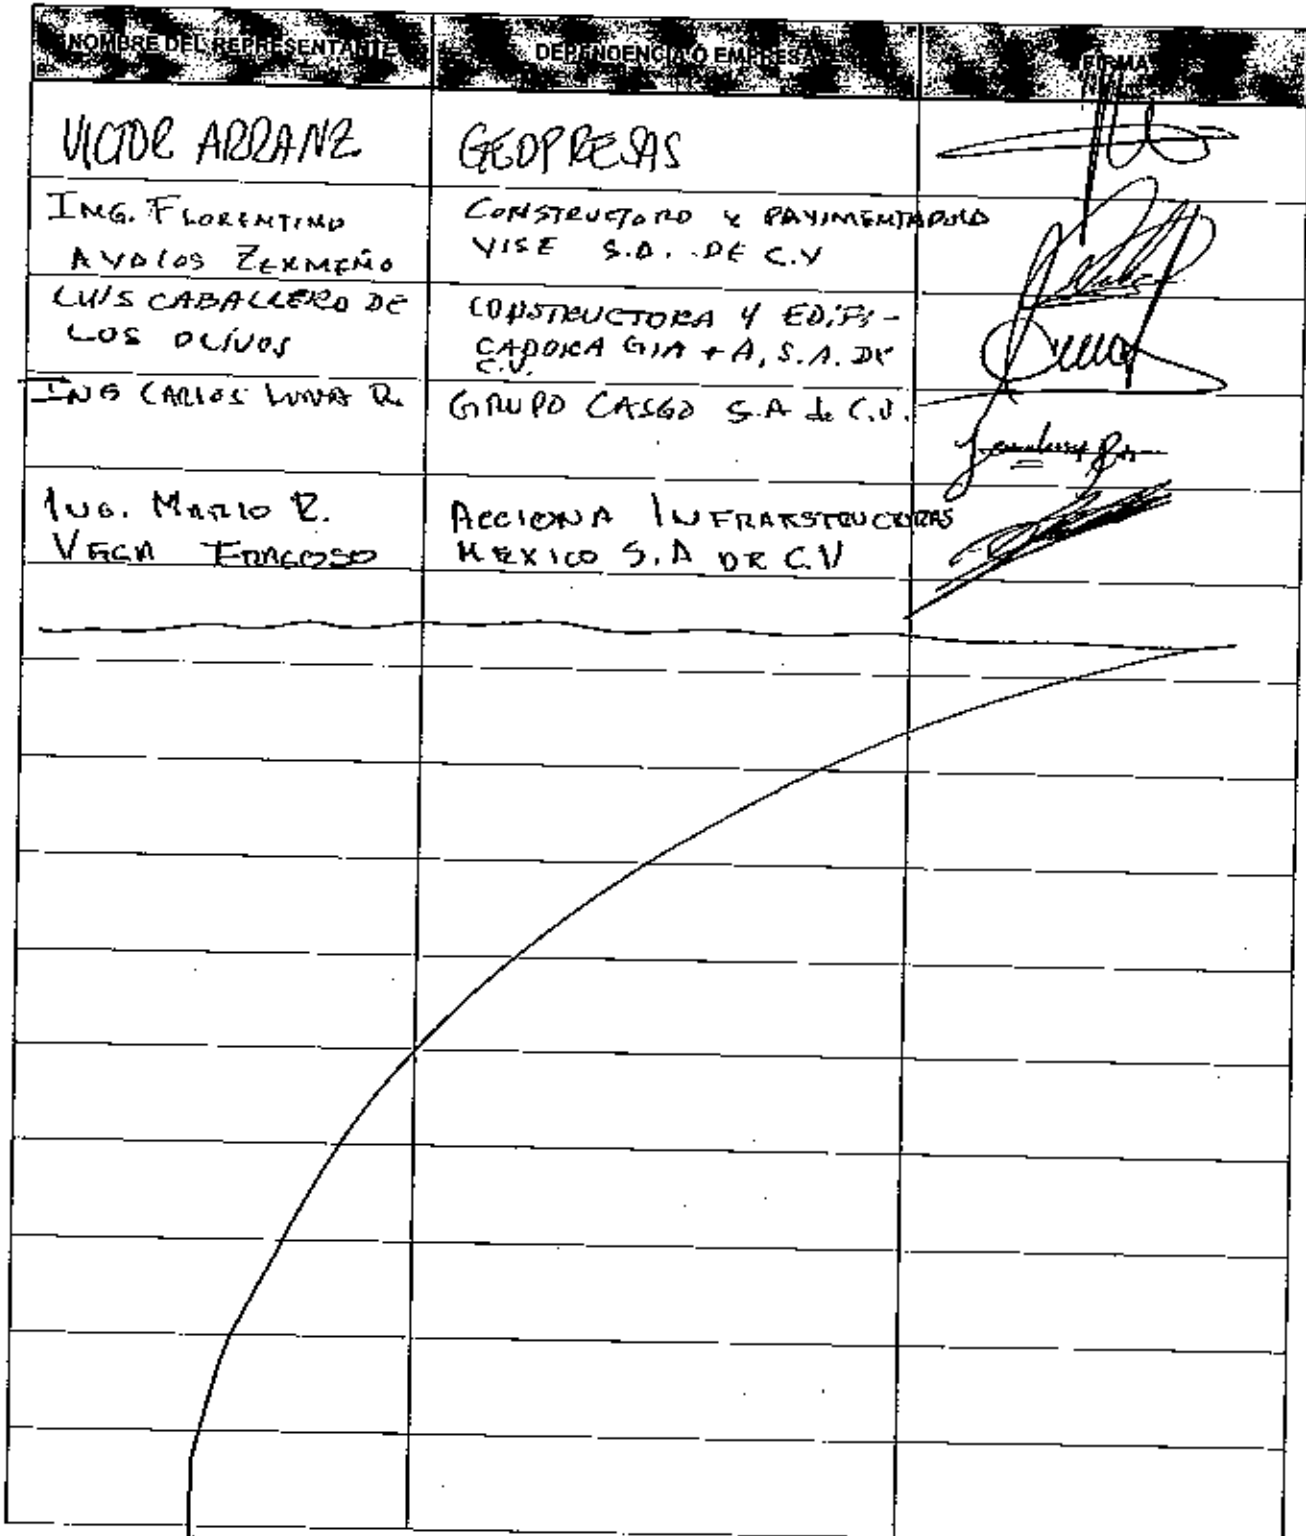 NOMBRE DEL REPRESENTANTE
DEPENDENCIA O EMPRESA
FIRMA
VICTOR ARRANZ
GEOPRESAS
ING. FLORENTINO
AVALOS ZERMEÑO
CONSTRUCTORA Y PAVIMENTADORA
VISE S.A. DE C.V
LUIS CABALLERO DE
LOS OLIVOS
CONSTRUCTORA Y EDIFI-
CADORA GIA + A, S.A. DE
C.V.
ING CARLOS LUNA R.
GRUPO CASGO S.A de C.V.
ING. MARIO R.
VEGA FRAGOSO
ACCIONA INFRAESTRUCTURAS
MEXICO S.A DE C.V